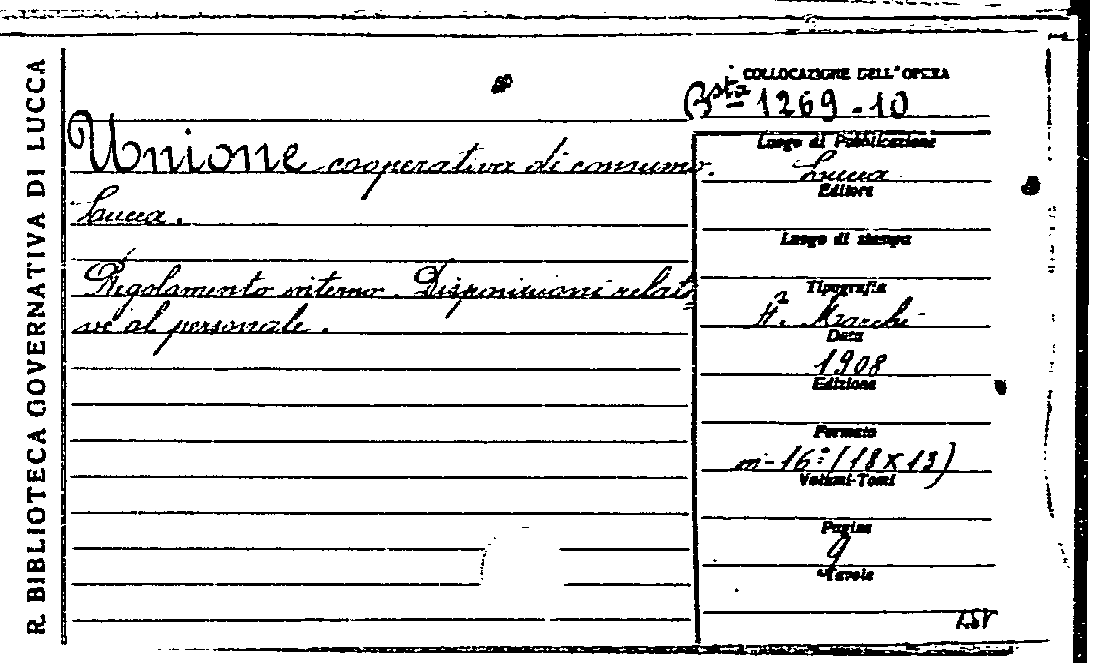 R. BIBLIOTECA GOVERNATIVA DI LUCCA
COLLOCAZIONE DELL'OPERA
Bsta 1269-10
Unione cooperativa di consumo.
Lucca.
Regolamento interno. Disposizioni relati=
ve al personale.
Luogo di Pubblicazione
Lucca
Editore
Luogo di stampa
Tipografia
Marchi
Data
1908
Edizione
Formato
in-16° (18x13)
Volumi-Tomi
Pagine
9
Tavole